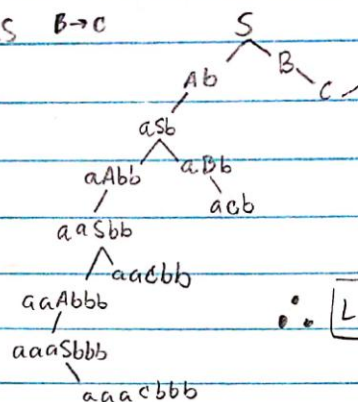 S B→C
S
Ab B
C
aSb
aAbb aBb
acb
aaSbb
aacbb
aaAbbb
∴ L
aaaSbbb
aaacbbb